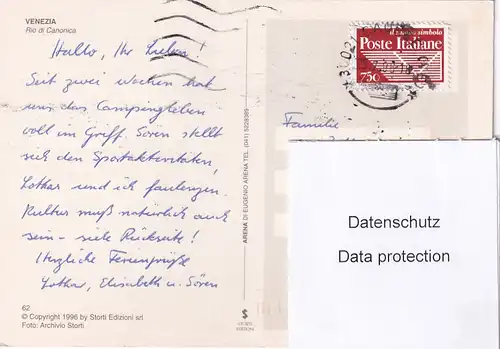 VENEZIA
Rio di Canonica
Hallo, Ihr Lieben!
Seit zwei Wochen hat
uns das Campingleben
voll im Griff. Sören stellt
sich den Sportaktivitäten,
Lothar und ich faulenzen.
Kultur muß natürlich auch
sein – siehe Rückseite!
Herzliche Feriengrüße
Lothar, Elisabeth u. Sören
62
© Copyright 1996 by Storti Edizioni srl
Foto: Archivio Storti
ARENA DI EUGENIO ARENA TEL. (041) 5228389
S
STORTI
EDIZIONI
il nuovo simbolo
Poste Italiane
750
Familie
Datenschutz
Data protection